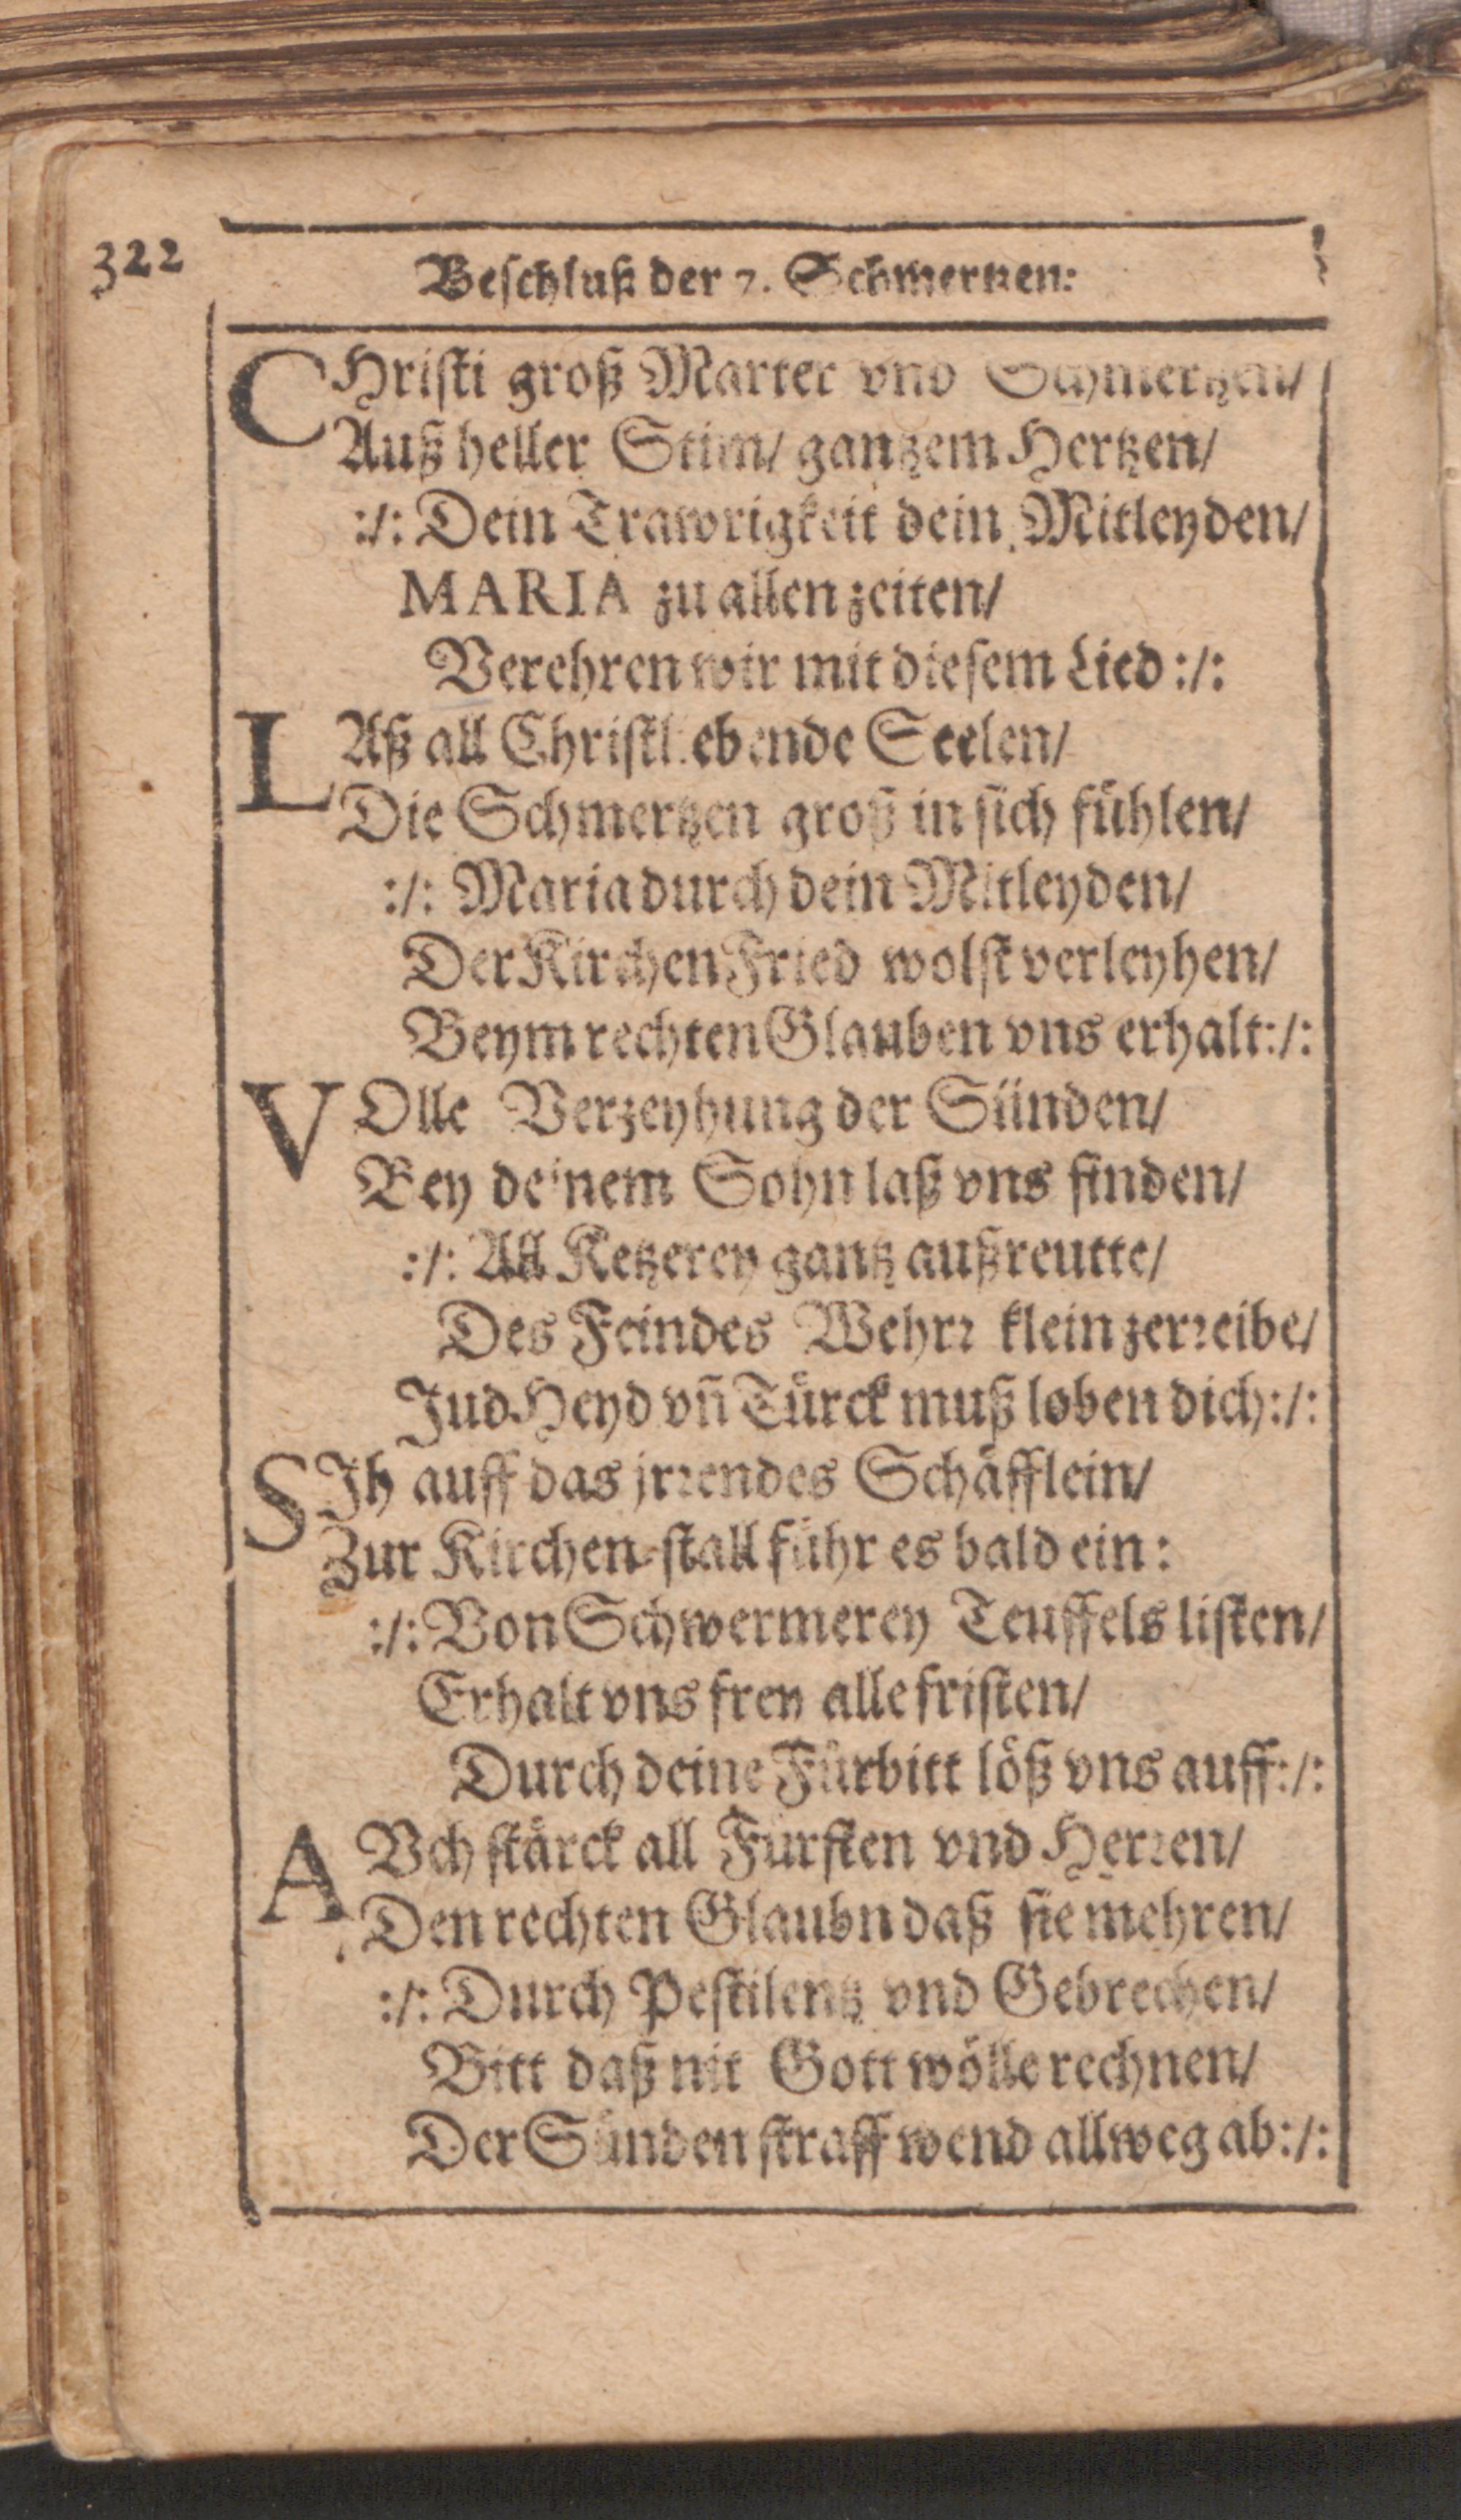 322
Beſchluß der 7. Schmertzen:
CHriſti groß Marter vnd Schmertzen/
Auß heller Stim̃/ gantzem Hertzen/
:/: Dein Trawrigkeit dein Mitleyden/
MARIA zu allen zeiten/
Verehren wir mit dieſem Lied :/:
LAß all Chriſtliebende Seelen/
Die Schmertzen groß in ſich fühlen/
:/: Maria durch dein Mitleyden/
Der Kirchen Fried wolſt verleyhen/
Beym rechten Glauben vns erhalt:/:
VOlle Verzeyhung der Sünden/
Bey deinem Sohn laß vns finden/
:/: All Ketzerey gantz außreutte/
Des Feindes Wehrꝛ klein zerꝛeibe/
Jud Heyd vñ Türck muß loben dich:/:
SJh auff das jrꝛendes Schäfflein/
Zur Kirchen-ſtall führ es bald ein:
:/: Von Schwermerey Teuffels liſten/
Erhalt vns frey alle friſten/
Durch deine Fürbitt löß vns auff:/:
AVch ſtärck all Fürſten vnd Herꝛen/
Den rechten Glaubn daß ſie mehren/
:/: Durch Peſtilentz vnd Gebrechen/
Bitt daß nit Gott wölle rechnen/
Der Sünden ſtraff wend allweg ab:/: